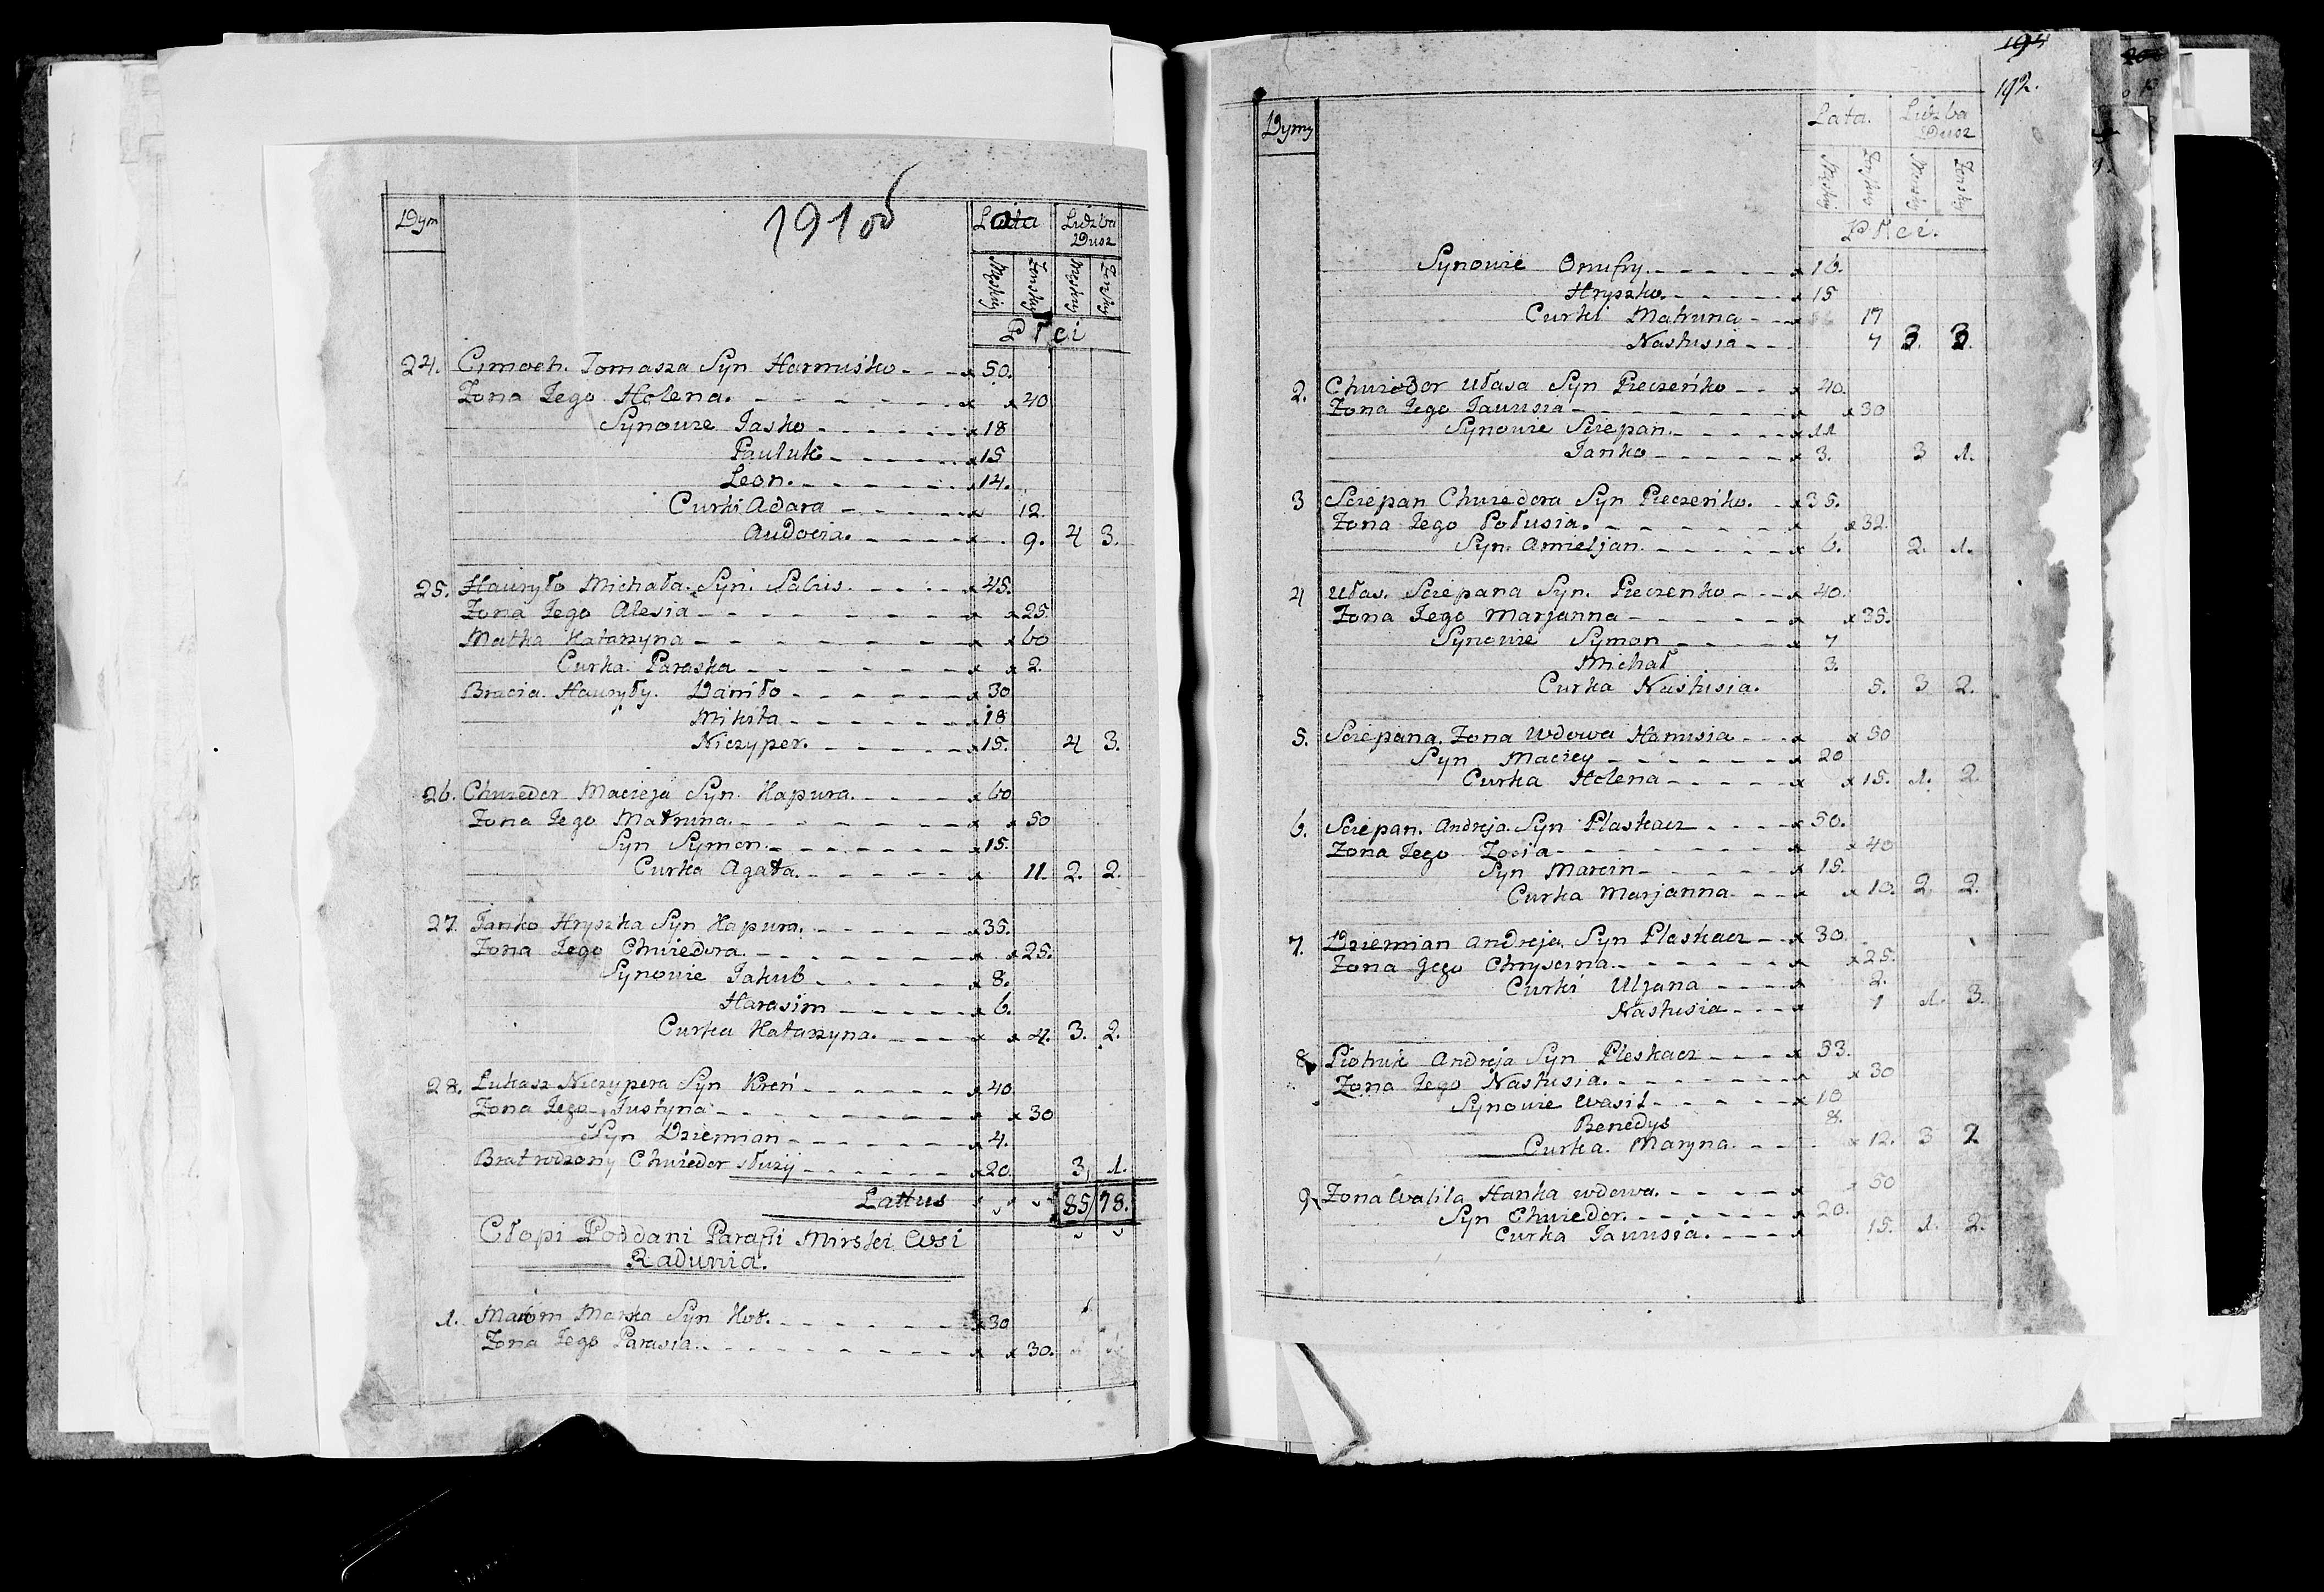 1910б
Dym
Lata
Liczba Dusz
Męskiey
Żenskiey
Męskiey
Żenskiey
Płci
24. Cimoch. Tomasza Syn Harmiśko - - - x 50.
Żona Jego Holena. - - - x x 40
Synowie Jaśko - - - x 18
Pauluk - - - x 15
Leon. - - - x 14.
Curki Adara - - - x 12.
Audocia. - - - x 9. 4 3.
25. Hauryło Michała. Syn. Sabis. - - - x 45.
Żona Jego Alesia - - - x x 25.
Matka Katarzyna - - - x x 60
Curka Paraska - - - x x 2.
Bracia Hauryły. Daniło - - - x 30
Mikita - - - x 18
Niczyper. - - - x 15. 4 3.
26. Chwiedor Macieja Syn. Hapura. - - - x 60
Żona Jego Matruna. - - - x x 50
Syn Symon. - - - x 15.
Curka Agata. - - - x 11. 2. 2.
27. Janko Hryszka Syn Hapura. - - - x 35.
Żona Jego Chwiedora. - - - x x 25.
Synowie Jakub - - - x 8.
Harasim - - - x 6.
Curka Katarzyna. - - - x x 4. 3. 2.
28. Lukasz Niczypera Syn Kreń - - - x 40.
Żona Jego Justyna - - - x x 30
Syn Dziemian - - - x 4.
Brat rodzony Chwiedor służy - - - x 20. 3, 1.
Lattus 85 78.
Cłopi Poddani Parafii Mirskei Wsi
Radunia.
1. Maxim Marka Syn Kot. - - - x 30
Żona Jego Parasia. - - - x x 30.
192.
Dymy
Lata.
Liczba Dusz
Męskiey
Żenskiey
Męskiey
Żenskiey
Płci.
Synowie Onufry. - - - x 16.
Hryszko. - - - x 15
Curki Matruna - - - x 17
Nastusia - - - 7 3. 3.
2. Chwiedor Ułasa Syn Pieczeńko - - x 40.
Żona Jego Taurusia - - - x x 30
Synowie Sciepan. - - - x 11
Janko - - - x 3. 3 1.
3 Sciepan Chwiedora Syn Pieczeńko. - x 35.
Żona Jego Połusia. - - - x x 32.
Syn. Amieljan. - - - x 6. 2. 1.
4 Ułas. Sciepana Syn. Pieczenko - - - x 40.
Żona Jego Marjanna - - - x x 35.
Synowie Symon - - - x 7
Michał 3.
Curka Nastusia. 5. 3 2.
5. Sciepana. Żona Wdowa Hanusia - - - x x 50
Syn Maciey - - - x 20
Curka Holena - - - x x 15. 1. 2.
6. Sciepan. Andreja. Syn Plaskacz - - - x 50.
Żona Jego Zosia - - - x x 40
Syn Marcin - - - x 15.
Curka Marjanna - - - x x 10. 2 2.
7. Dziemian Andreja. Syn Plaskacz - - x 30.
Żona Jego Chryscina. - - - x x 25.
Curki Uljana - - - x 2.
Nastusia - - - x 1 1. 3.
8. Piotruk Andreja Syn Pleskacz - - - x 33.
Żona Jego Nastusia. - - - x x 30
Synowie Wasil - - - x 10
Benedys 8.
Curka. Maryna. - - - x 12. 3 2
9. Żona Walila Hanka wdowa. - - - x x 50
Syn Chwiedor. - - - x 20.
Curka Taurusia. - - - x 15. 1. 2.